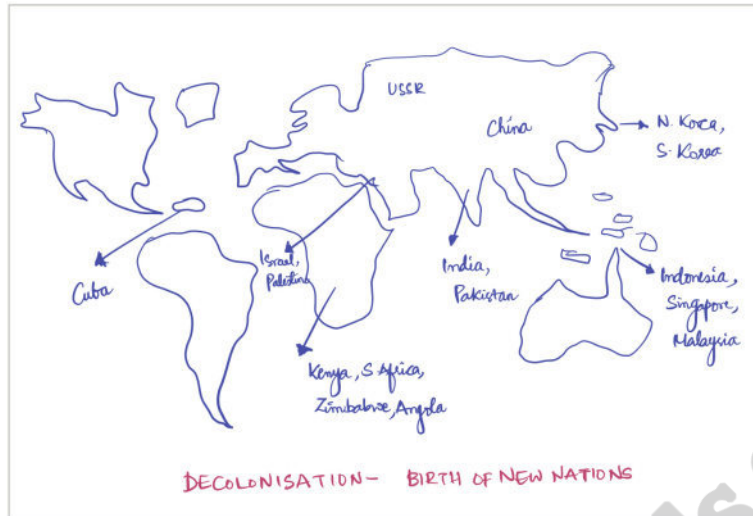 USSR
China
N. Korea,
S. Korea
Cuba
Israel,
Palestine
India,
Pakistan
Indonesia,
Singapore,
Malaysia
Kenya, S Africa,
Zimbabwe, Angola
DECOLONISATION - BIRTH OF NEW NATIONS